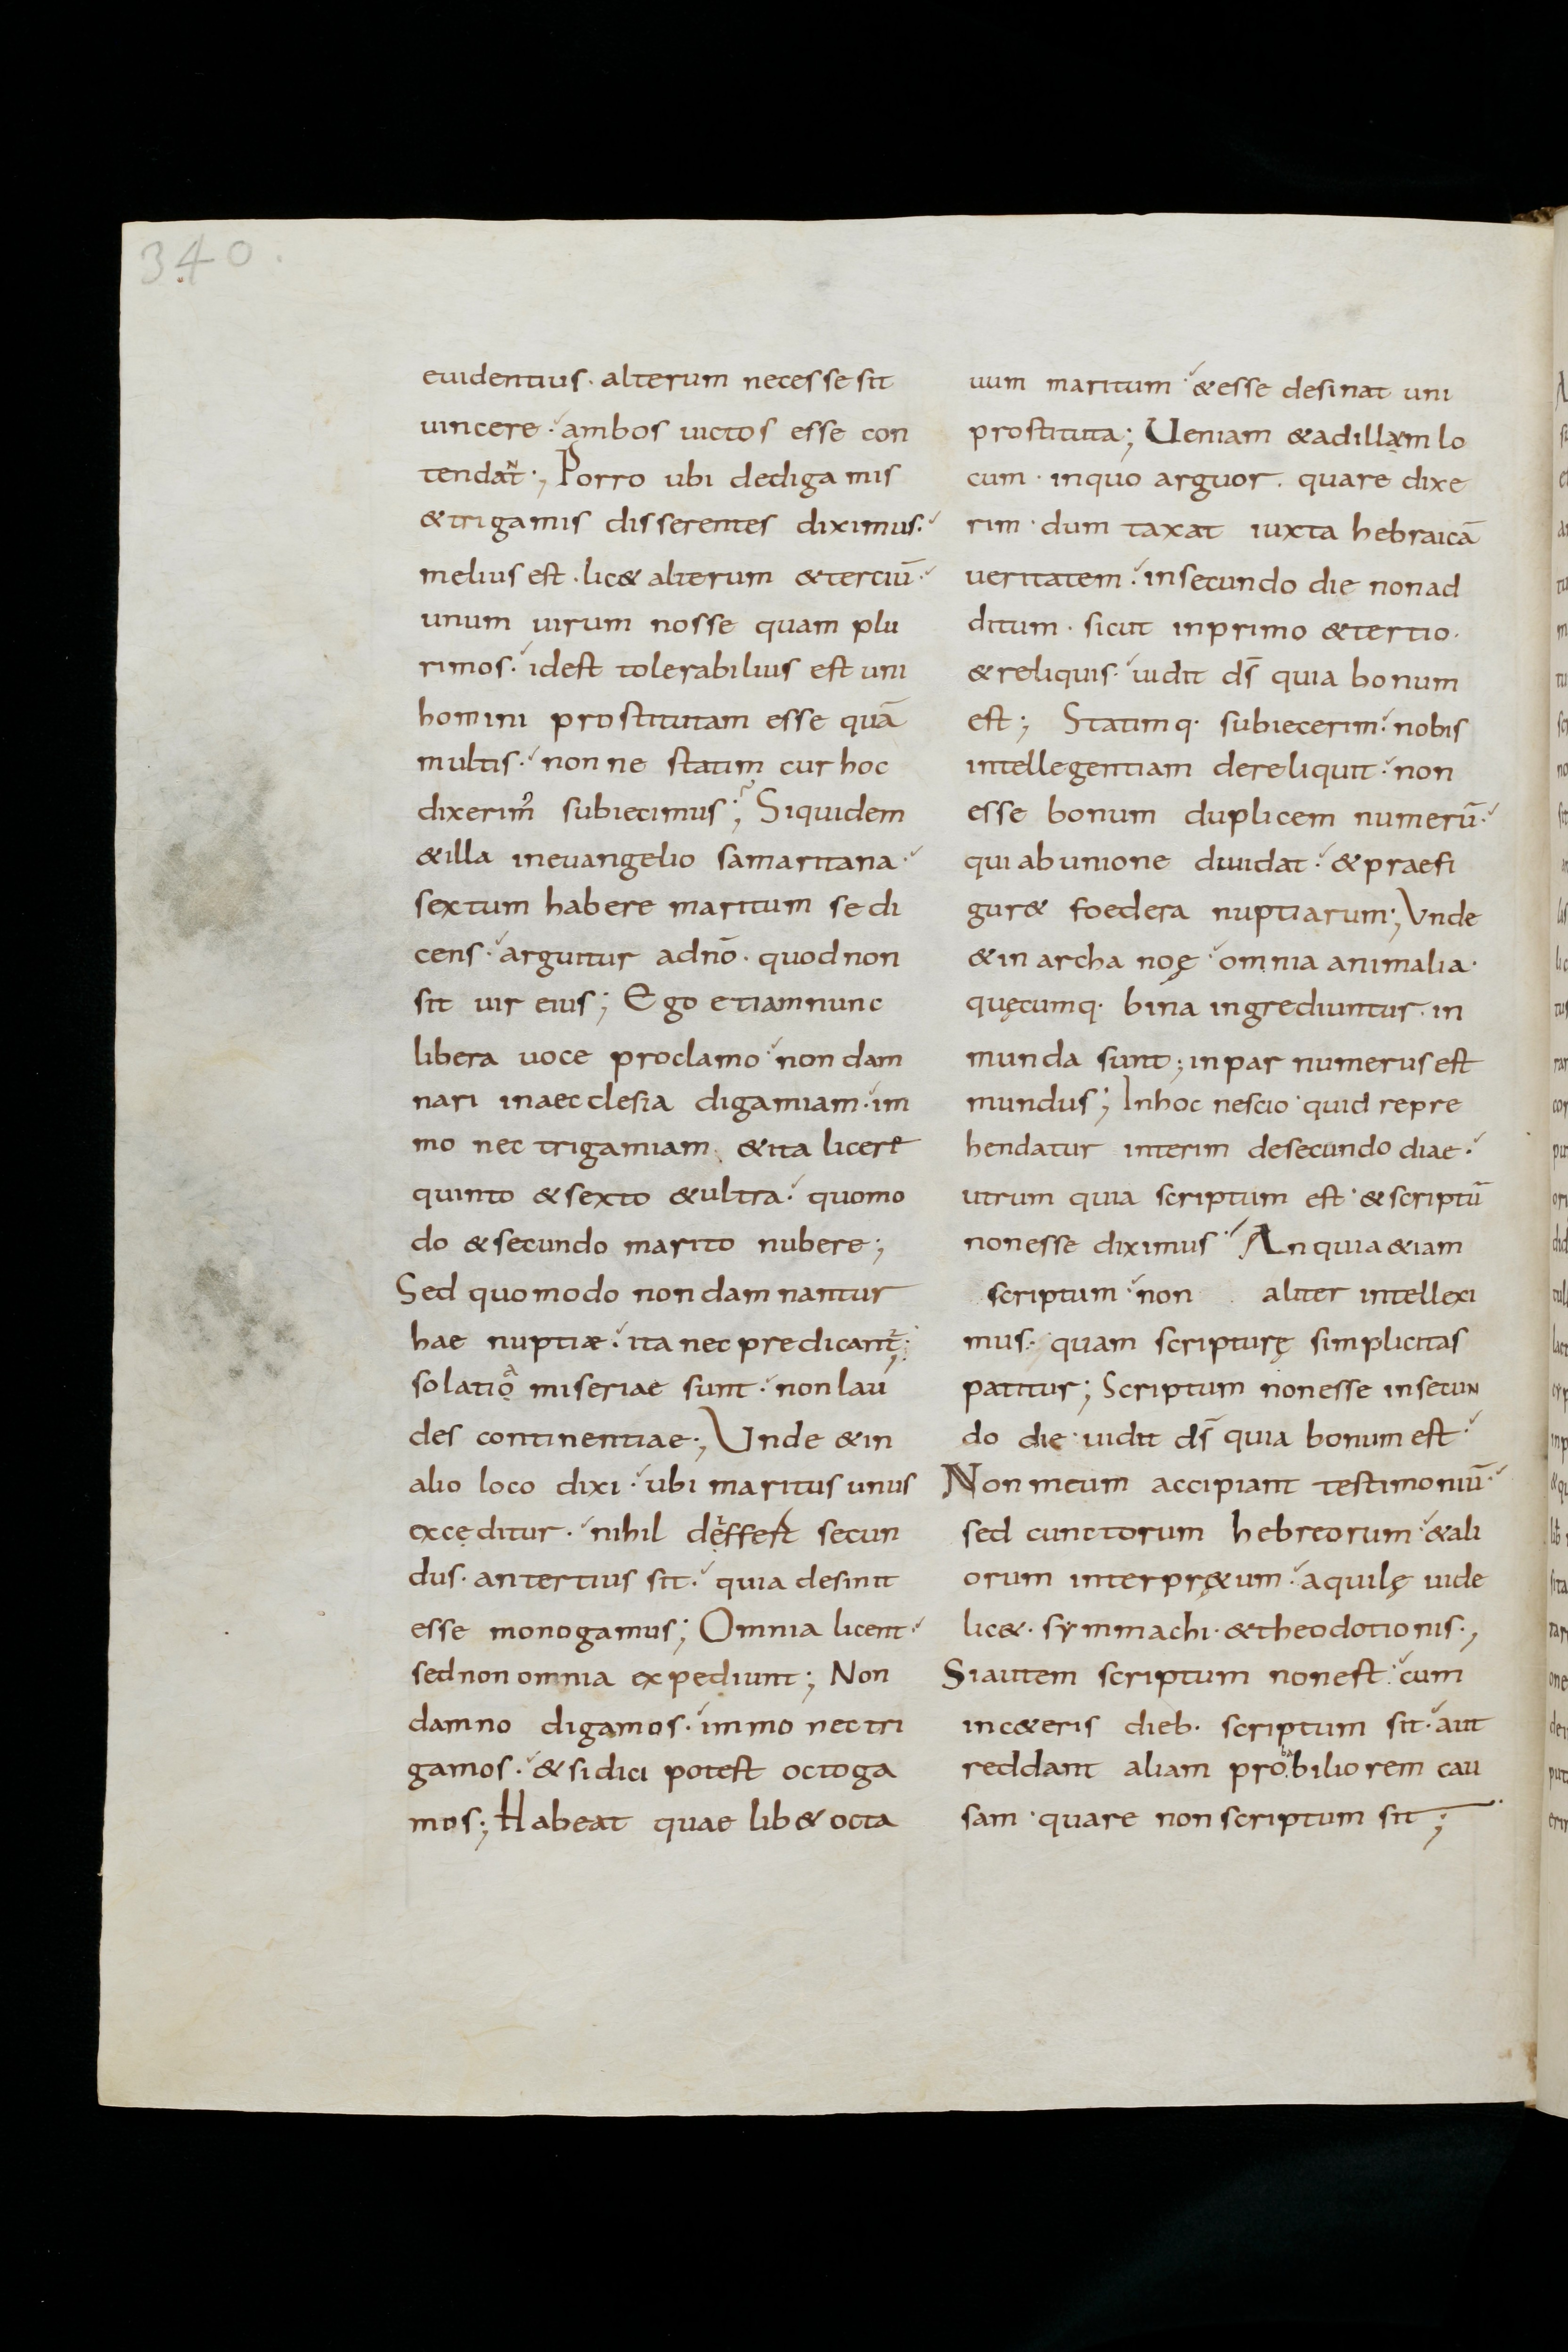 340.
euidentius · alterum necesse sit
uincere · ambos uictos esse con
tendant ·; Porro ubi de digamis
& trigamis disserentes diximus ·
melius est · lic& alterum & terciū ·
unum uirum nosse quam plu
rimos · idest tolerabilius est uni
homini prostitutam esse quā
multis · nonne statim cur hoc
dixerim᾽ subiecimus; Siquidem
& illa in euangelio samaritana ·
sextum habere maritum se di
cens · arguitur adnō · quod non
sit uir eius; Ego etiam nunc
libera uoce proclamo · non dam
nari in aecclesia digamiam · im
mo nec trigamiam · & ita licere
quinto & sexto & ultra · quomo
do & secundo marito nubere;
Sed quomodo non damnantur
hae nuptiæ · ita nec predicant᷑;
solatia miseriae sunt · non lau
des continentiae ·; Vnde & in
alio loco dixi · ubi maritus unus
excęditur · nihil differt secun
dus · an tertius sit · quia desinit
esse monogamus; Omnia licent ·
sed non omnia expediunt; Non
damno digamos · immo nec tri
gamos · & si dici potest octoga
mos; Habeat quae lib& octa
uum maritum · & esse desinat uni
prostituta; Ueniam & ad illum lo
cum · in quo arguor · quare dixe
rim · dum taxat iuxta hebraicā
ueritatem · in secundo die non ad
ditum · sicut in primo & tertio ·
& reliquis · uidit ds̄ quia bonum
est; Statimq· subiecerim · nobis
intellegentiam dereliquit · non
esse bonum duplicem numerū ·
qui ab unione diuidat · & praefi
gur& foedera nuptiarum ·; Vnde
& in archa noę · omnia animalia ·
quęcumq· bina ingrediuntur · in
munda sunt; inpar numerus est
mundus; In hoc nescio quid repre
hendatur interim de secundo diae ·
utrum quia scriptum est · & scriptū
non esse diximus · An quia &iam
scriptum · non aliter intellexi
mus · quam scripturę simplicitas
patitur; Scriptum non esse in secun
do die · uidit ds̄ quia bonum est ·
Non meum accipiant testimoniū ·
sed cunctorum hebreorum · & ali
orum interpr&um · aquilę uide
lic& · symmachi · & theodotionis ·;
Si autem scriptum non est · cum
in c&eris dieb· scriptum sit · aut
reddant aliam probabiliorem cau
sam · quare non scriptum sit;